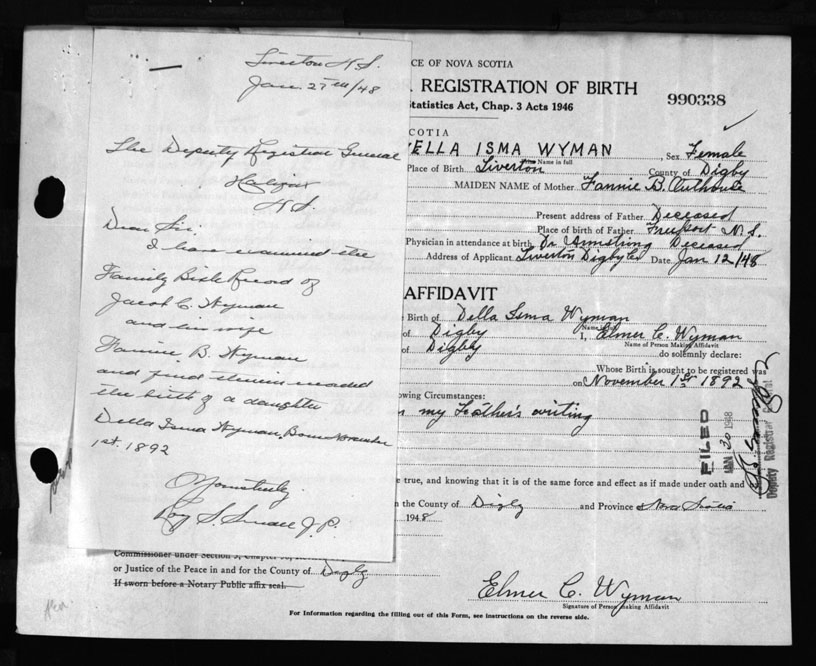 Tiverton N.S.
Jan. 27th/48
The Deputy Registrar General
Halifax
N.S.
Dear Sir:
I have examined the
Family Bible Record of
Jacob C. Wyman
and his wife
Fannie B. Wyman
and find therein recorded
the birth of a daughter
Della Isma Wyman, Born November
1st. 1892
Yours truly
Roy S. Small J.P.
CE OF NOVA SCOTIA
REGISTRATION OF BIRTH
990338
Statistics Act, Chap. 3 Acts 1946
COTIA
ELLA ISMA WYMAN Sex Female
Name in full
Place of Birth Tiverton County of Digby
MAIDEN NAME of Mother Fannie B. Outhouse
Present address of Father Deceased
Place of birth of Father Freeport N.S.
Physician in attendance at birth Dr Armstrong Deceased
Address of Applicant Tiverton Digby Co Date Jan 12/48
AFFIDAVIT
Birth of Della Isma Wyman
of Digby I, Elmer C. Wyman
Name of Person Making Affidavit
of Digby do solemnly declare:
Whose Birth is sought to be registered was
on November 1st 1892
owing Circumstances:
my Father's writing
FILED
JAN 30 1948
Deputy Registrar General
e true, and knowing that it is of the same force and effect as if made under oath and
n the County of Digby and Province Nova Scotia
1948
Commissioner under Section
or Justice of the Peace in and for the County of Digby
If sworn before a Notary Public affix seal.
Elmer C. Wyman
Signature of Person making Affidavit
For Information regarding the filling out of this Form, see instructions on the reverse side.